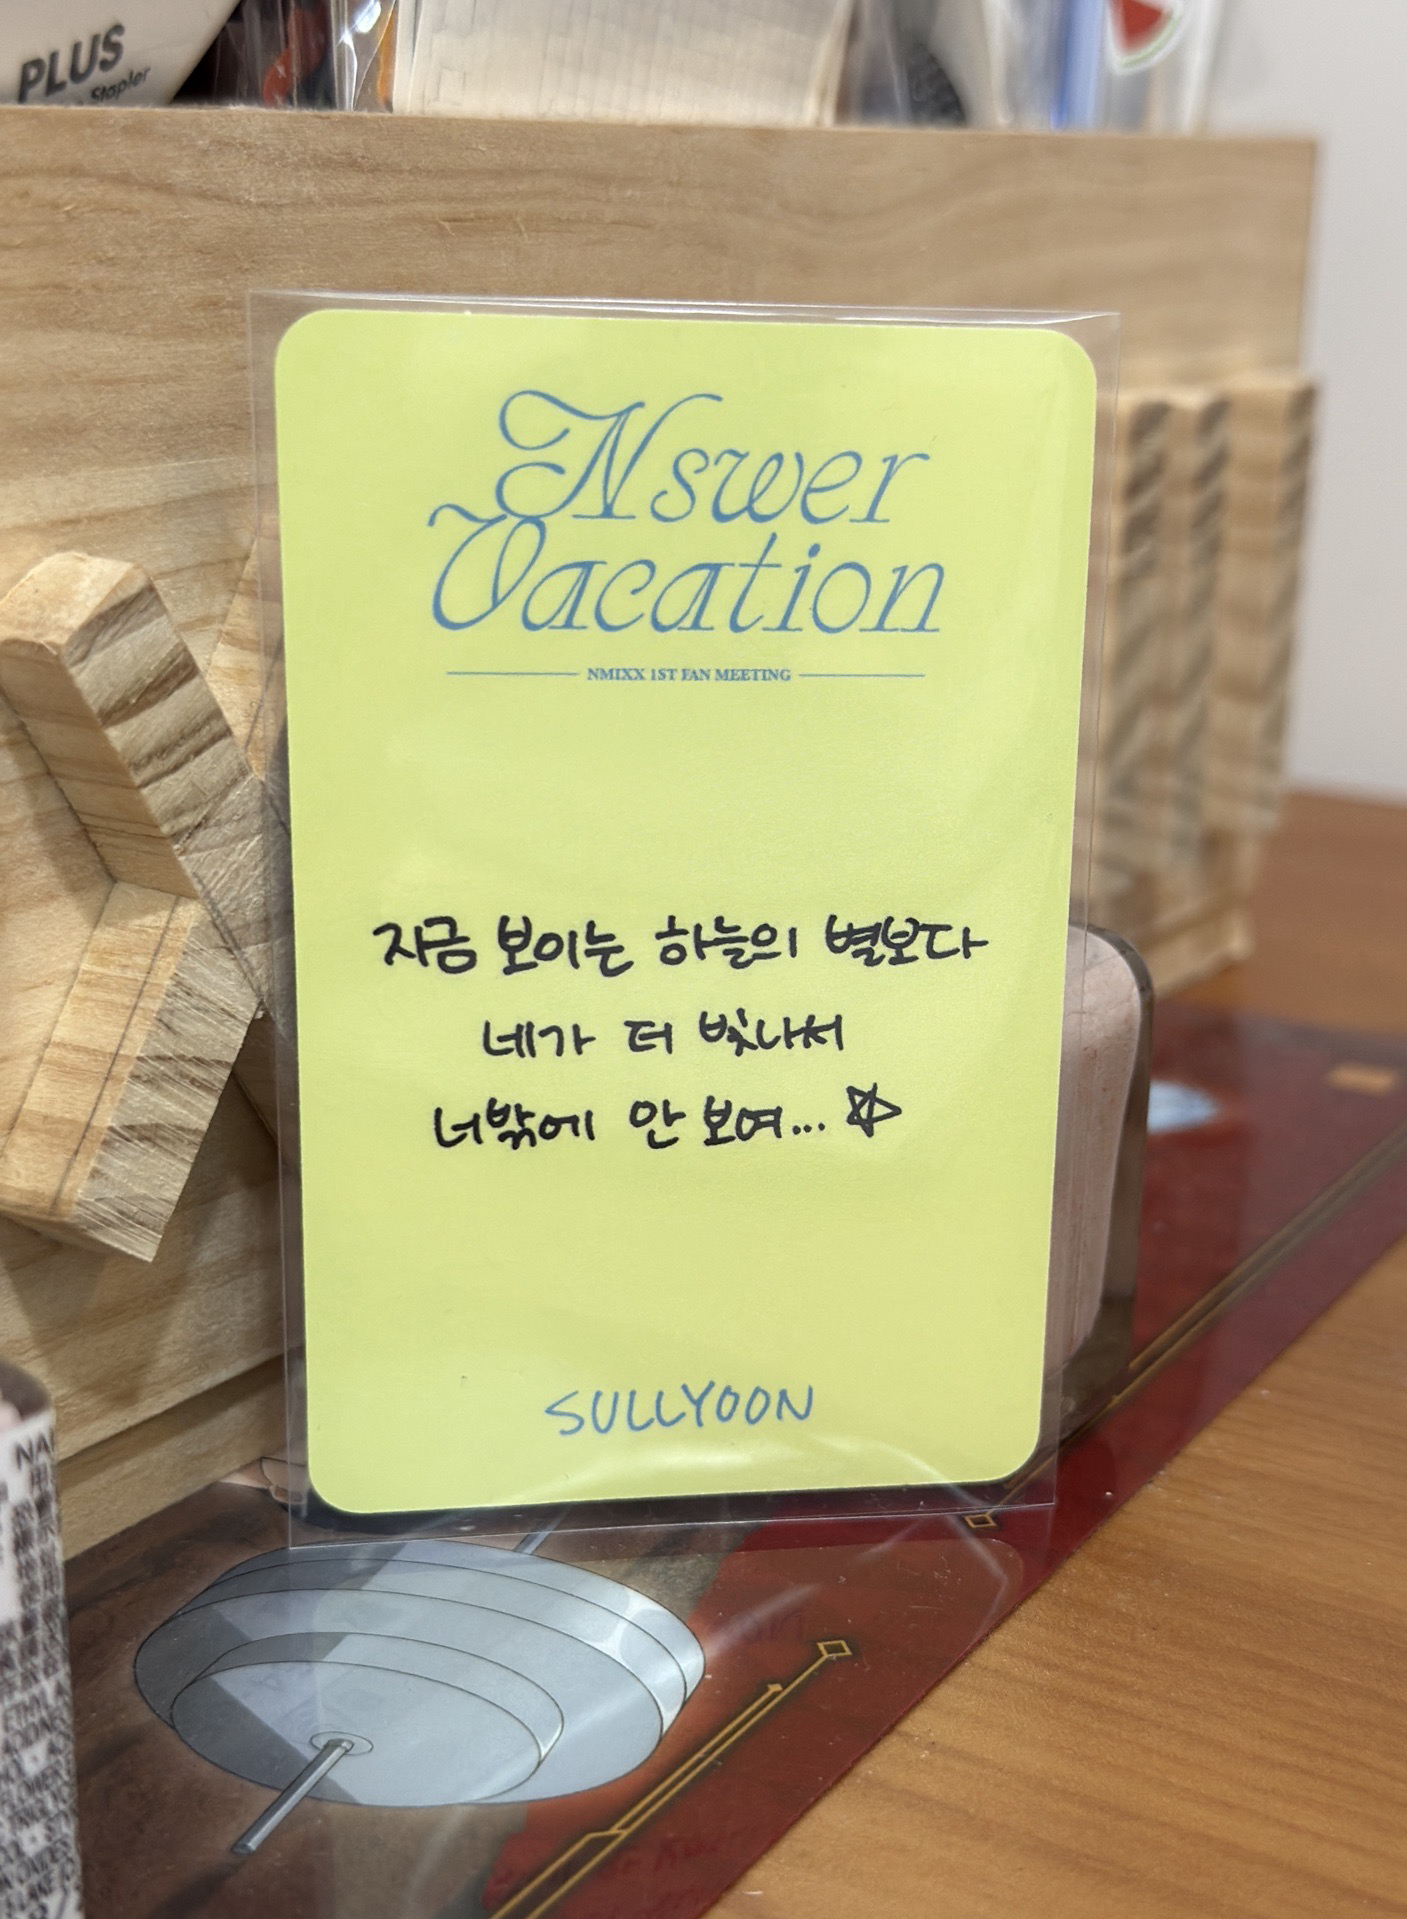 PLUS
Stapler
Nswer
Vacation
NMIXX 1ST FAN MEETING
지금 보이는 하늘의 별보다
네가 더 빛나서
너밖에 안 보여... ☆
SULLYOON